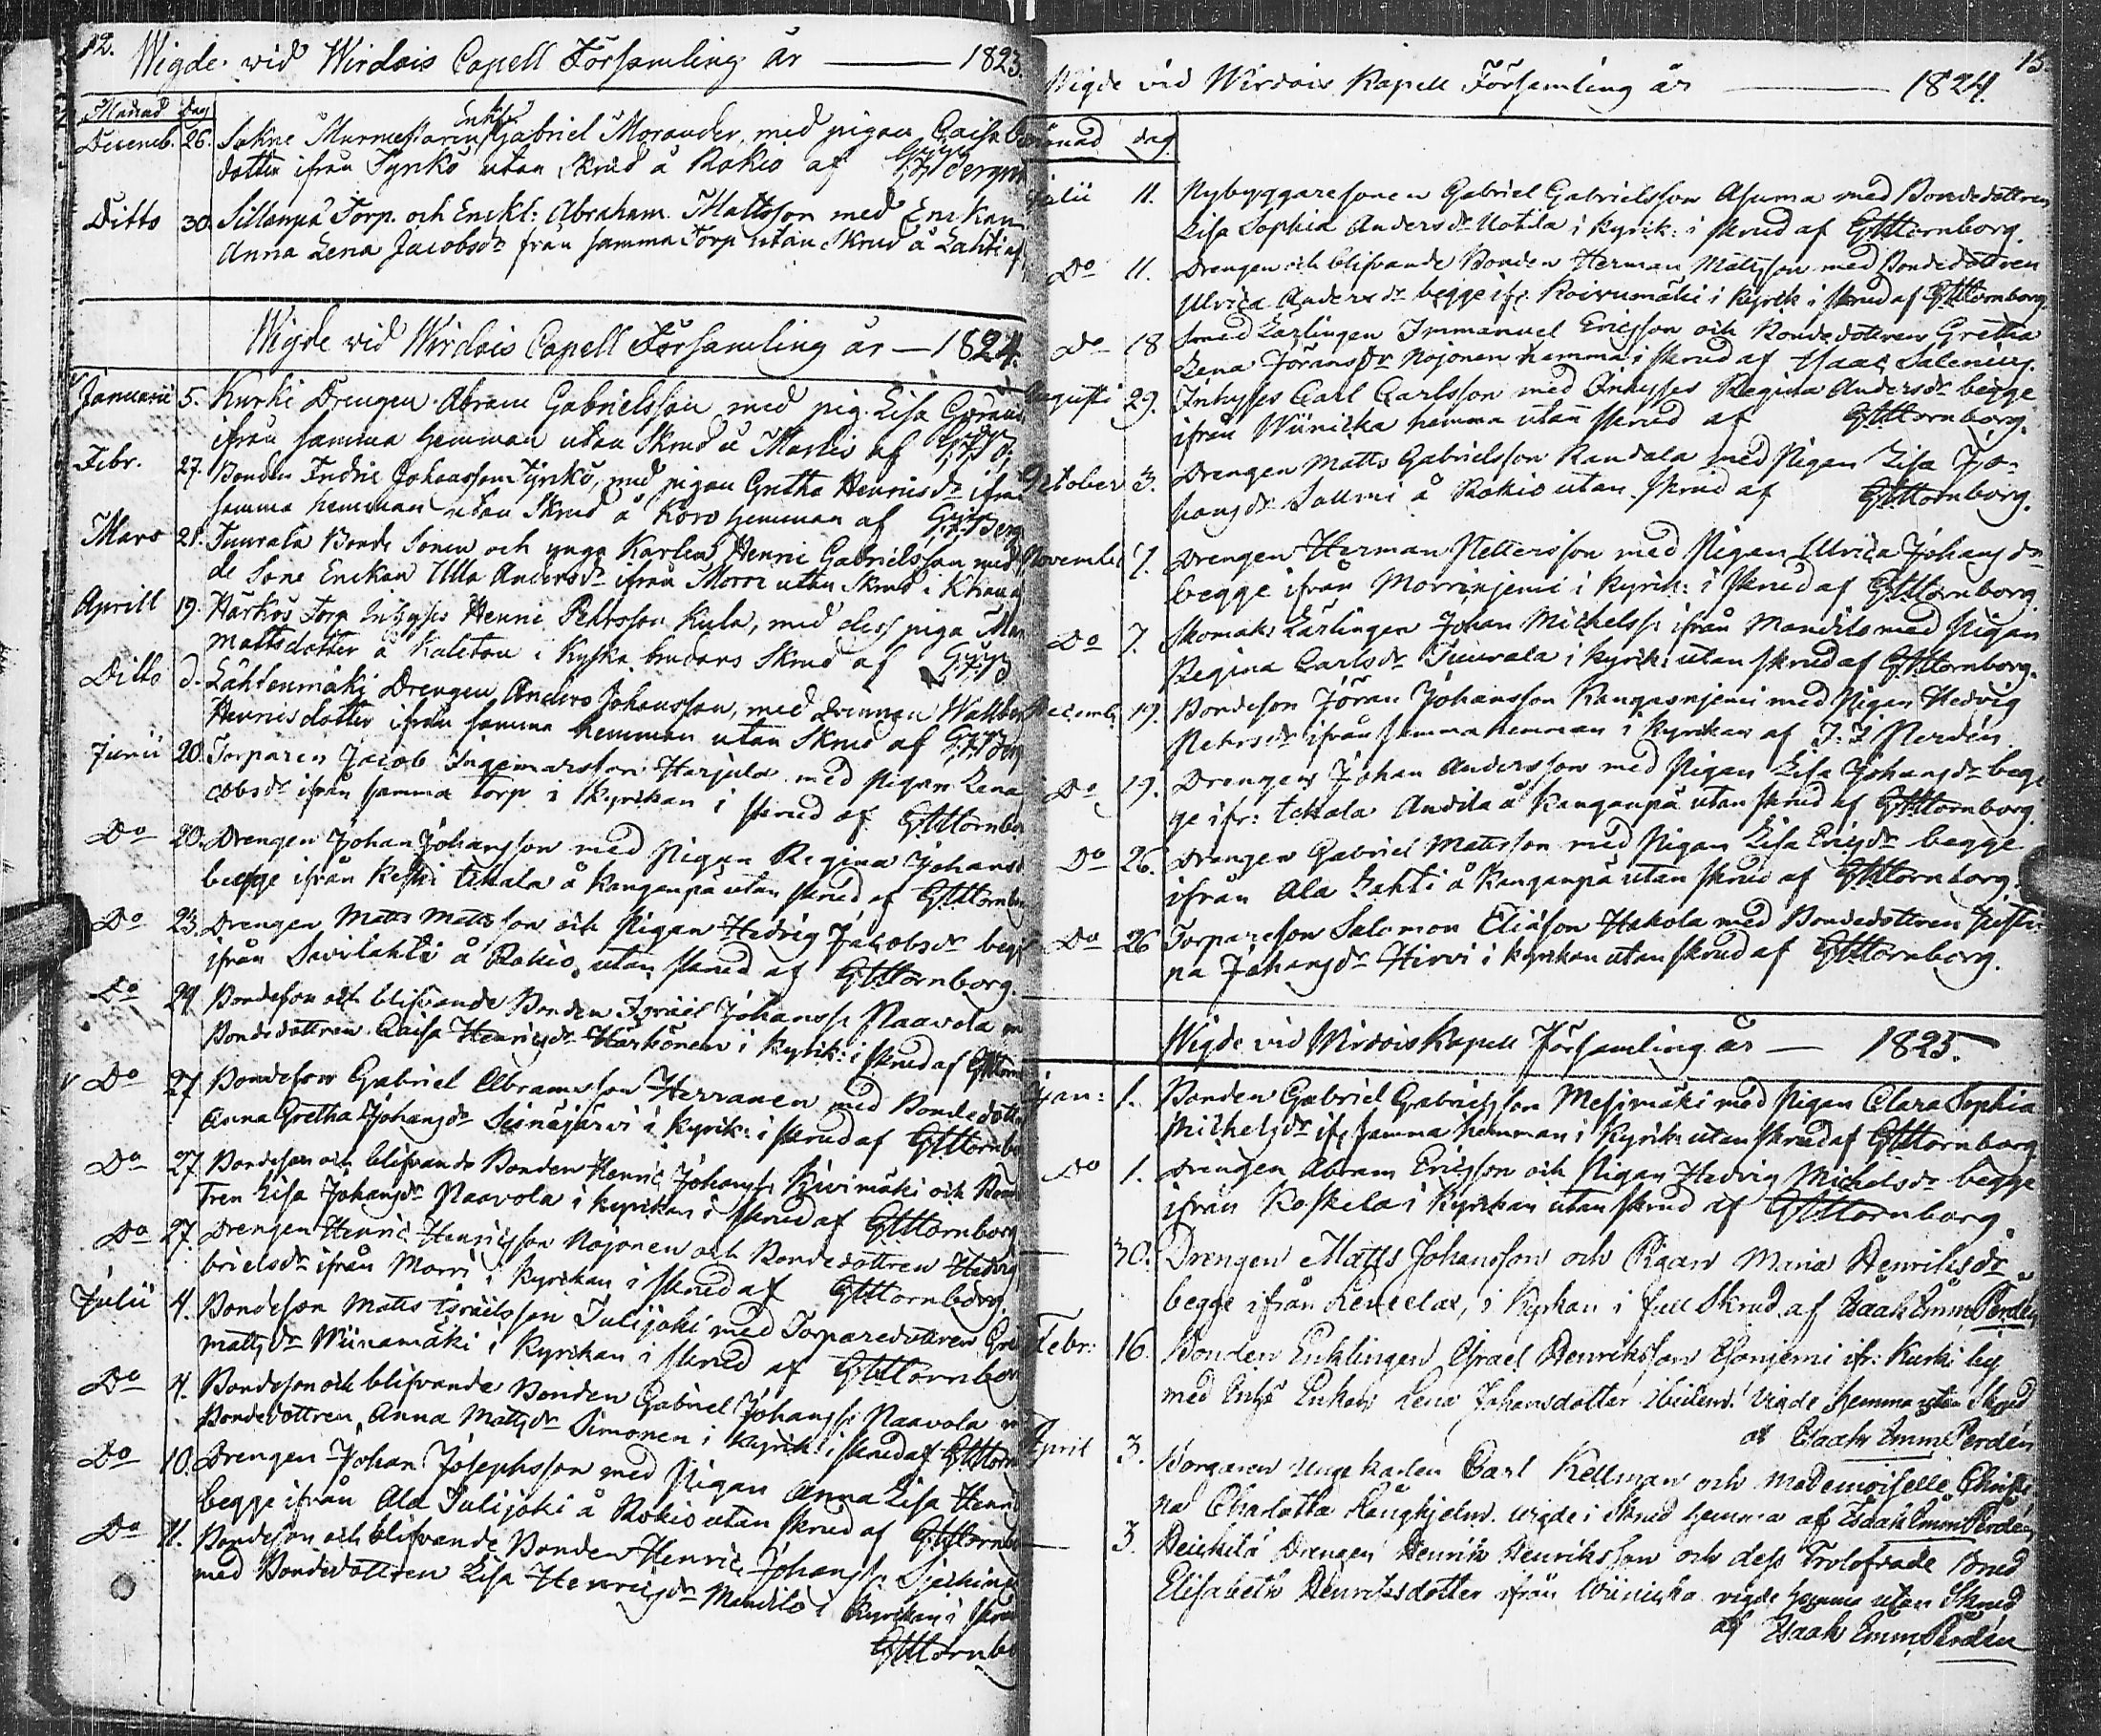 12.
Wigde vid Wirdois Capell Församling år — 1823.
Månad dag
Decemb. 26. Sokne Murmest. Enkl: Gabriel Morander, med pigan Caisa
dotter ifrån Tyrikö utan skrud å Rokio af
Ditto 30. Sillanpä Torp. och Enckl: Abraham Mattsson med Enckan
Anna Lena Jacobsdr från samma Torp utan Skrud å Lahti af
Wigde vid Wirdois Capell Församling år — 1824.
Januarii 5. Kurki Drengen Abram Gabrielsson med pig. Lisa
ifrån samma hemman utan Skrud å af
Febr. 27. Bonden Johansson med pigan Gretha Henricsdr ifrån
samma hemman utan Skrud å hemman af
Mars 21. Tuurala Bonde Sonen och unga Karlen Henric Gabrielsson med
de Sone Enckan Ulla Andersdr ifrån Morri utan Skrud i
Aprill 19. Härkös Torp Inhyses Henric Pehrsson Kula, med dess piga
Mattsdotter å i Kyrka brudars Skrud af
Ditto d. Lähtenmäki Drengen Anders Johansson, med
Henricsdotter ifrån samma hemman utan Skrud af
Junii 20. Torparen Jacob Ingemarsson Harjula med Pigan Lena
cobsdr ifrån samma Torp i Kyrkan i skrud af GHHornbo
Do 20. Drengen Johan Johansson med Pigan Regina Johans
begge ifrån Keski tekala å Kanganpä utan skrud af GHHornbo
Do 23. Drengen Matts Mattsson och Pigan Hedvig Jakobsdr beg
ifrån Savilahti å Rokio utan skrud af GHHornborg.
Do 24 Bondeson och blifvande Bonden Israël Johanss: Naavola
Bondedottren Caisa Henricsdr Härkönen i Kyrik: i skrud af GHHorn
Do 27 Bondeson Gabriel Abramsson Herranen med Bondedott
Anna Gretha Johansdr Sisnäjärvi i Kyrik: i skrud af GHHornbo
Do 27. Bondeson och blifvande Bonden Henric Johanss: Kivimäki och
tren Lisa Johansdr Naavola i Kyrkan i skrud af GHHornborg
Do 27. Drengen Henric Henricsson Nojonen och Bondedottren Hedvig
brielsdr ifrån Morri i Kyrkan i skrud af GHHornborg.
Julii 4. Bondeson Matts Israelsson Julijoki med Torparedottren Gre
Mattsdr Wiinamäki i Kyrkan i skrud af GHHornbor
Do 4. Bondeson och blifvande Bonden Gabriel Johanss: Naavola
Bondedottren Anna Mattsdr Simonen i Kyrik: i skrud af GHHorn
Do 10. Drengen Johan Josephsson med Pigan Anna Lisa Henri
begge ifrån Ala Julijoki å Rokio utan skrud af GHHornb
Do 11. Bondeson och blifvande Bonden Henric Johanss:
med Bondedottren Lisa Henricsdr Mandilo i Kyrkan i skru
GHHornbo
13.
Wigde vid Wirdois Kapell Församling år — 1824.
Månad dag
Julii 11. Nybyggaresonen Gabriel Gabrielsson Asuma med Bondedottren
Lisa Sophia Andersdr Uotila i Kyrik: i skrud af GHHornborg.
Do 11. Drengen och blifvande Bonden Herman Mattsson med Bondedottren
Ulrica Andersdr begge ifr: Koivumäki i Kyrik i skrud af GHHornborg.
Do 18 Smed Lärlingen Immanuel Ericsson och Bondedottren Gretha
Lena Jöransdr Nojonen hemma i skrud af Isaac Salenius.
Augusti 29. Inhyses Carl Carlsson med Inhyses Regina Andersdr begge
ifrån Wiinicka hemma utan skrud af GHHornborg.
October 3. Drengen Matts Gabrielsson Randala med Pigan Lisa Jo-
hansdr Sallmi å Rokio utan skrud af GHHornborg.
November 7. Drengen Herman Pettersson med Pigan Ulrica Johansdr
begge ifrån Morrinjemi i Kyrik: i skrud af GHHornborg.
Do 7. Skomak: Lärlingen Johan Michelss: ifrån Mandilo med Pigan
Regina Carlsdr Tuurala i Kyrik: utan skrud af GHHornborg.
Decemb. 19. Bondeson Jöran Johansson Kangasnjemi med Pigan Hedvig
Pehrsdr ifrån samma hemman i Kyrkan af I: I Perdén
Do 19. Drengen Johan Andersson med Pigan Lisa Johansdr beg
ge ifr: tekala Andila å Kanganpä utan skrud af GHHornborg.
Do 26. Drengen Gabriel Mattsson med Pigan Lisa Ericsdr begge
ifrån Ala Lahti å Kanganpä utan skrud af GHHornborg.
Do 26 Torpareson Salomon Eliasson Hakola med Bondedottren
na Johansdr Hirvi i Kyrkan utan skrud af GHHornborg.
Wigde vid Wirdois Kapell Församling år — 1825.
Jan: 1. Bonden Gabriel Gabrielsson Mesimäki med Pigan Clara Sophia
Michelsdr if: samma hemman i Kyrik: utan skrud af GHHornborg
Do 1. Drengen Abram Ericsson och Pigan Hedvig Michelsdr begge
ifrån Koskela i Kyrkan utan skrud af GHHornborg.
— 30. Drengen Matts Johansson och Pigan Maria Henriksdr
begge ifrån i Kyrkan i full Skrud af Isaak Emm. Perdén
Febr: 16. Bonden Enklingen Israel Henriksson ifr: Kurki by
med Inhys Enkan Lena Johansdotter vigde hemma utan Skrud
af Isaak Emm. Perdén
April 3. Borgaren Ungekarlen Carl Kellman och Mademoiselle Christi
na Charlotta Långhjelm. vigde i Skrud hemma af Isaak Emm Perdén
— 3. Heickilä Drengen Henrik Henriksson och dess Trolofvade Brud
Elisabeth Henriksdotter ifrån Wiinicka vigde hemma utan Skrud
af Isaak Emm. Perdén